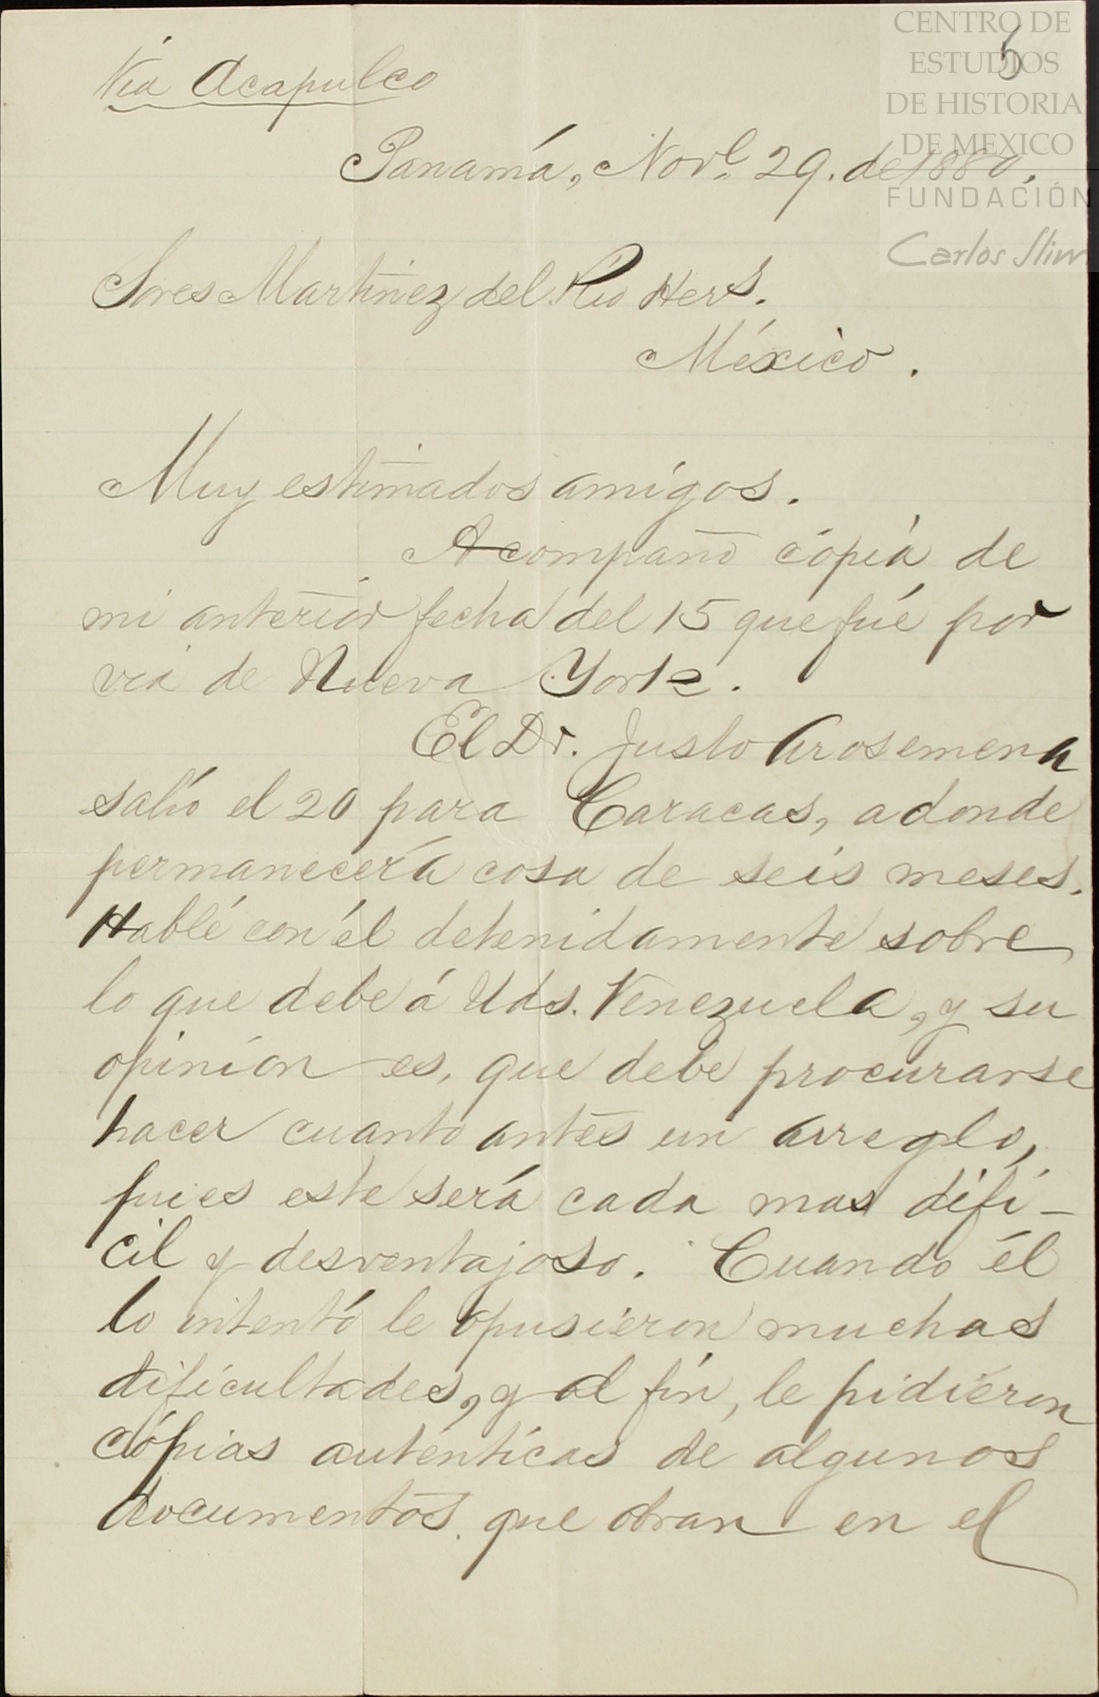 CENTRO DE
ESTUDIOS
DE HISTORIA
DE MEXICO
FUNDACIÓN
Carlos Slim
5
Via Acapulco
Panamá, Nov.e 29. de 1880.
Sores Martinez del Rio Hers.
México.
Muy estimados amigos.
Acompaño cópia de
mi anterior fecha del 15 que fué por
via de Nueva York.
El Dr. Justo Arosemena
salió el 20 para Caracas, adonde
permanecerá cosa de seis meses.
Hablé con él detenidamente sobre
lo que debe á Uds. Venezuela, y su
opinion es, que debe procurarse
hacer cuanto antes un arreglo,
pues este será cada mas difi-
cil y desventajoso. Cuando él
lo intentó le opusieron muchas
dificultades, y al fin, le pidieron
cópias auténticas de algunos
documentos que obran en el